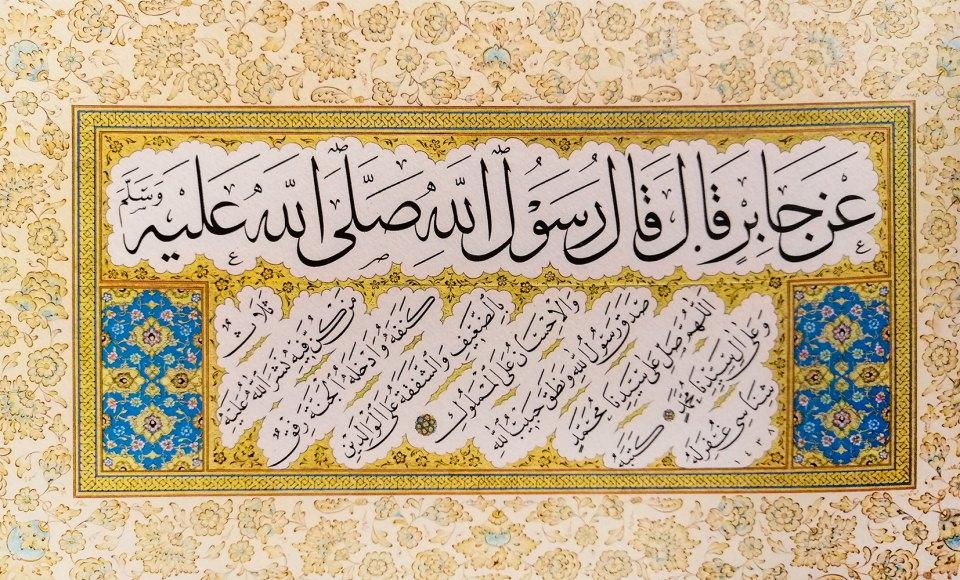 عَنْ جَابِرٍ قَالَ قَالَ رَسُولُ اللّٰهِ صَلَّى اللّٰهُ عَلَيْهِ وَسَلَّمَ
ثَلَاثٌ
مَنْ كُنَّ فِيهِ نَشَرَ اللّٰهُ عَلَيْهِ
كَنَفَهُ وَأَدْخَلَهُ الْجَنَّةَ رِفْقٌ
بِالضَّعِيفِ وَالشَّفَقَةُ عَلَى الْوَالِدَيْنِ
وَالْإِحْسَانُ عَلَى الْمَمْلُوكِ
صَدَقَ رَسُولُ اللّٰهِ وَنَطَقَ حَبِيبُ اللّٰهِ
اللّٰهُمَّ صَلِّ عَلَى سَيِّدِنَا مُحَمَّدٍ
وَعَلَى آلِ سَيِّدِنَا مُحَمَّدٍ كَتَبَهُ
غفر له